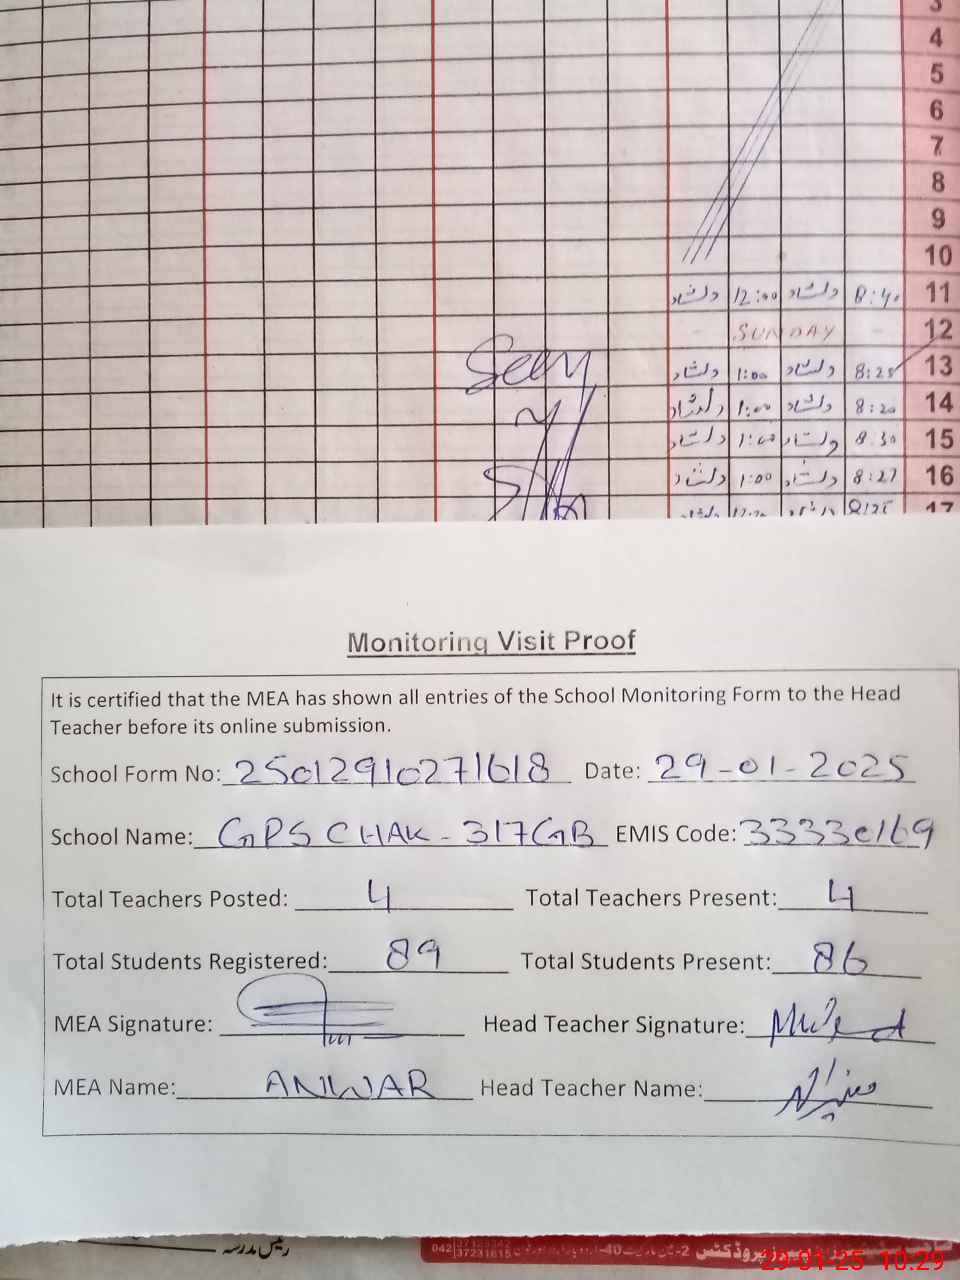 3
4
5
6
7
8
9
10
دلشاد 12:00 دلشاد 8:40 11
SUNDAY 12
دلشاد 1:00 دلشاد 8:25 13
دلشاد 1:00 دلشاد 8:20 14
دلشاد 1:00 دلشاد 8.30 15
دلشاد 1:00 دلشاد 8:27 16
8:25 17
Seen
Monitoring Visit Proof
It is certified that the MEA has shown all entries of the School Monitoring Form to the Head
Teacher before its online submission.
School Form No: 25012910271618 Date: 29-01-2025
School Name: GPS CHAK-317GB EMIS Code: 33330169
Total Teachers Posted: 4 Total Teachers Present: 4
Total Students Registered: 89 Total Students Present: 86
MEA Signature: Head Teacher Signature:
MEA Name: ANWAR Head Teacher Name:
رئیس مدرسہ
042 37231815
29-01-25 10:29